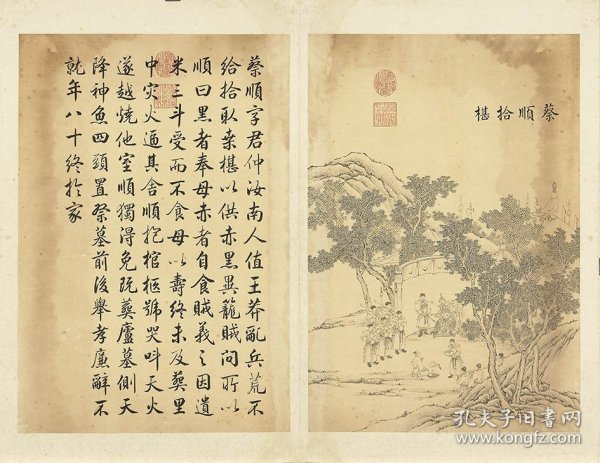 蔡順拾椹
蔡順字君仲汝南人值王莽亂兵荒不
給拾取桒椹以供赤黑異籠賊問所以
順曰黑者奉母赤者自食賊義之因遺
米三斗受而不食母以壽終未及葬里
中灾火逼其舍順抱棺柩號哭呌天火
遂越燒他室順獨得免既葬廬墓側天
降神魚四頭置祭墓前後舉孝廉辭不
就年八十終於家
孔夫子旧书网
www.kongfz.com